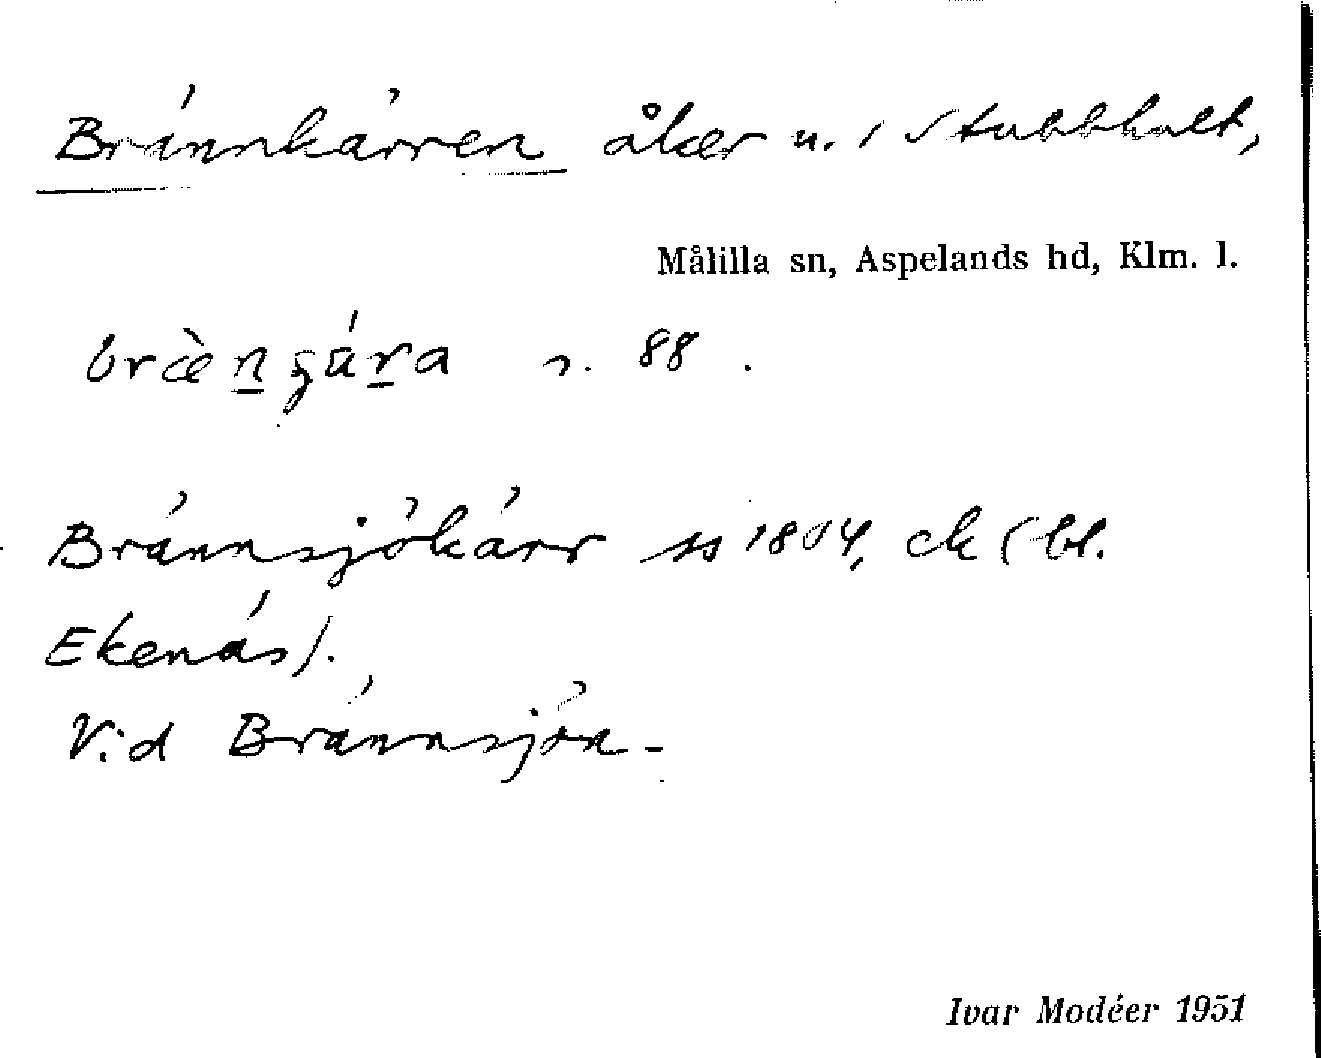 Brännkärren åker u. i Stubbhult,
Målilla sn, Aspelands hd, Klm. l.
s. 88.
Brännsjökärr ss 1804, ck (bl.
Ekenäs).
Vid Brännsjön.
Ivar Modéer 1951